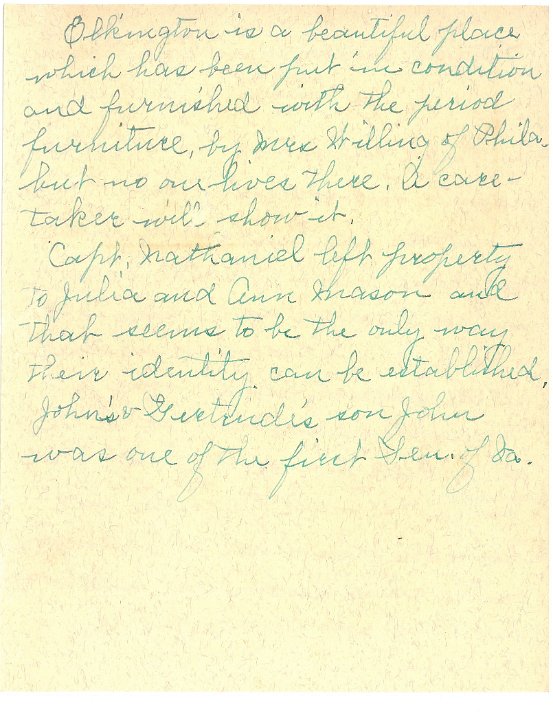 Elkington is a beautiful place
which has been put in condition
and furnished with the period
furniture, by Mrs Willing of Phila.
but no one lives there. A care-
taker will show it.
Capt. Nathaniel left property
to Julia and Ann Mason and
that seems to be the only way
their identity can be established.
John's & Gertrude's son John
was one of the first Sen. of Va.